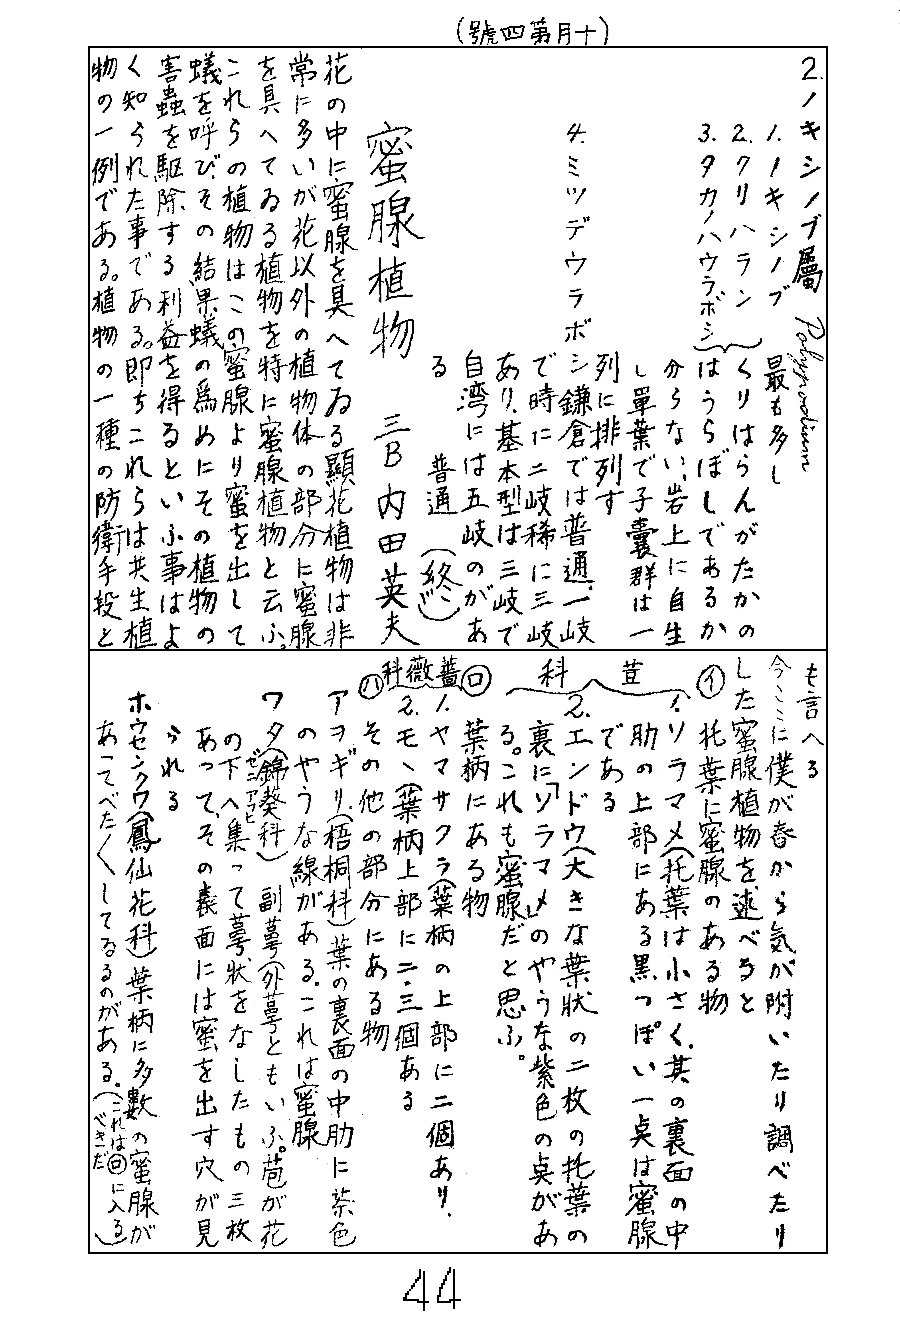 (十月第四號)
2. ノキシノブ屬 Polypodium
1. ノキシノブ 最も多し
2. クリハラン くりはらんがたかの
3. タカノハウラボシ はうらぼしであるか
分らない、岩上に自生
し單葉で子囊群は一
列に排列す
4. ミツデウラボシ 鎌倉では普通、一岐
で時に二岐稀に三岐
あり、基本型は三岐で
自湾には五岐のがあ
る 普通 (終)
蜜腺植物
三B 内田英夫
花の中に蜜腺を具へてゐる顯花植物は非
常に多いが花以外の植物体の部分に蜜腺
を具へてゐる植物を特に蜜腺植物と云ふ。
これらの植物はこの蜜腺より蜜を出して
蟻を呼び、その結果蟻の爲めにその植物の
害蟲を駆除する利益を得るといふ事はよ
く知られた事である。即ちこれらは共生植
物の一例である。植物の一種の防衛手段と
も言へる
今こゝに僕が春から気が附いたり調べたり
した蜜腺植物を述べると
イ 托葉に蜜腺のある物
荳科
1. ソラマメ(托葉は小さく、其の裏面の中
肋の上部にある黒っぽい一点は蜜腺
である
2. エンドウ(大きな葉狀の二枚の托葉の
裏に「ソラマメ」のやうな紫色の点があ
る。これも蜜腺だと思ふ。
ロ 葉柄にある物
薔薇科
1. ヤマサクラ(葉柄の上部に二個あり.
2. モヽ(葉柄上部に二・三個ある
ハ その他の部分にある物
アヲギリ(梧桐科)葉の裏面の中肋に茶色
のやうな線がある、これは蜜腺
ワタ(錦葵科) 副萼(外萼ともいふ。苞が花
ゼニアフヒ
の下へ集って萼状をなしたもの三枚
あって、その表面には蜜を出す穴が見
られる
ホウセンクワ(鳳仙花科)葉柄に多數の蜜腺が
あってべた〱してゐるのがある。(これは㋺に入る
べきだ)
44